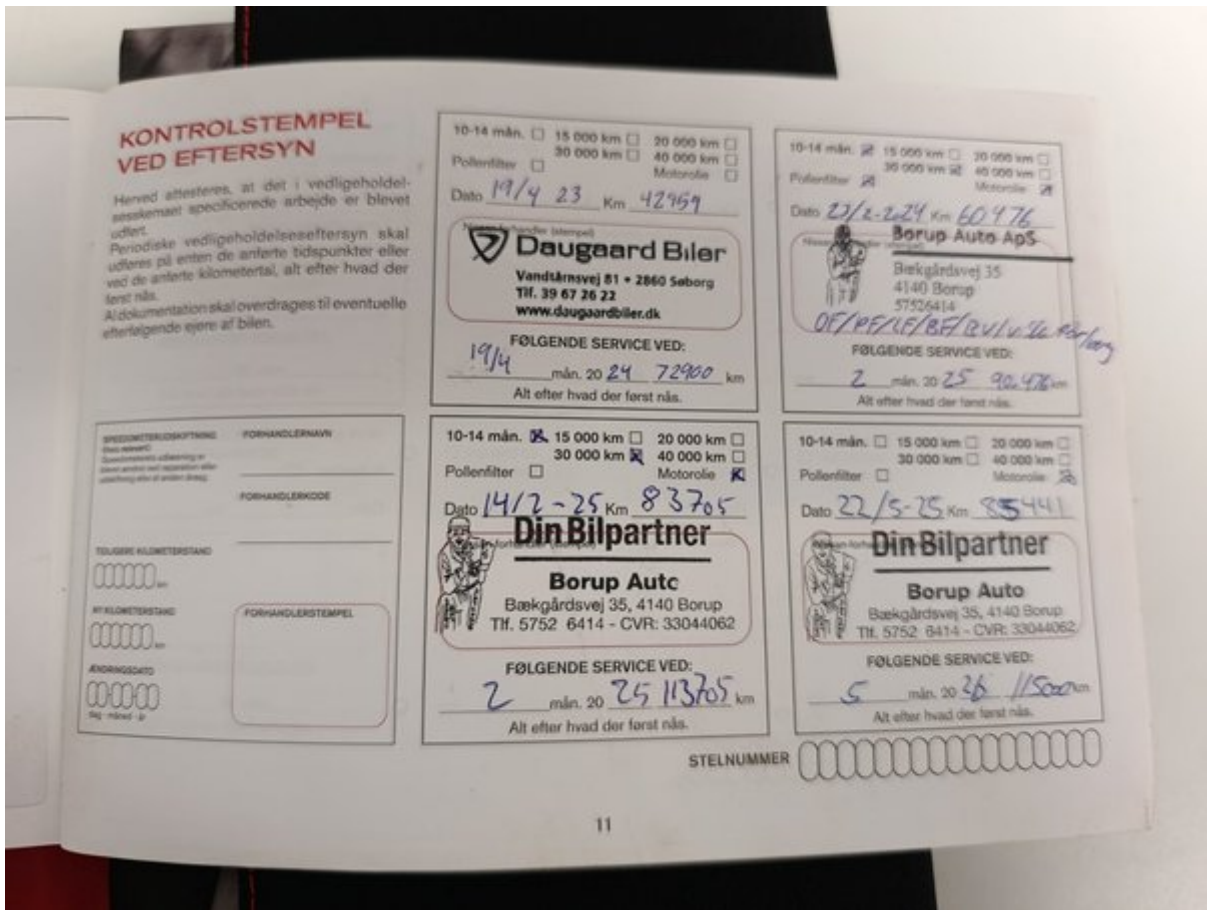 KONTROLSTEMPEL
VED EFTERSYN
Herved attesteres, at det i vedligeholdel-
sesskemaet specificerede arbejde er blevet
udført.
Periodiske vedligeholdelseseftersyn skal
udføres på enten de anførte tidspunkter eller
ved de anførte kilometertal, alt efter hvad der
først nås.
Al dokumentation skal overdrages til eventuelle
efterfølgende ejere af bilen.
SPEEDOMETERUDSKIFTNING
FORHANDLERNAVN
FORHANDLERKODE
TIDLIGERE KILOMETERSTAND
km
NY KILOMETERSTAND
km
ÆNDRINGSDATO
Dag - måned - år
FORHANDLERSTEMPEL
10-14 mån. 15 000 km 20 000 km
30 000 km 40 000 km
Pollenfilter Motorolie
Dato 19/4 23 Km 42959
Nissan-forhandler (stempel)
Daugaard Biler
Vandtårnsvej 81 • 2860 Søborg
Tlf. 39 67 26 22
www.daugaardbiler.dk
FØLGENDE SERVICE VED:
19/4 mån. 20 24 72900 km
Alt efter hvad der først nås.
10-14 mån. 15 000 km 20 000 km
30 000 km 40 000 km
Pollenfilter Motorolie
Dato 23/2-2024 Km 60476
Borup Auto ApS
Bækgårdsvej 35
4140 Borup
57526414
OF/PF/LF/BF/BV/
FØLGENDE SERVICE VED:
2 mån. 20 25 90.476 km
Alt efter hvad der først nås.
10-14 mån. 15 000 km 20 000 km
30 000 km 40 000 km
Pollenfilter Motorolie
Dato 14/2-25 Km 83705
Din Bilpartner
Borup Auto
Bækgårdsvej 35, 4140 Borup
Tlf. 5752 6414 - CVR: 33044062
FØLGENDE SERVICE VED:
2 mån. 20 25 113705 km
Alt efter hvad der først nås.
10-14 mån. 15 000 km 20 000 km
30 000 km 40 000 km
Pollenfilter Motorolie
Dato 22/5-25 Km 85441
Din Bilpartner
Borup Auto
Bækgårdsvej 35, 4140 Borup
Tlf. 5752 6414 - CVR: 33044062
FØLGENDE SERVICE VED:
5 mån. 20 26 115000 km
Alt efter hvad der først nås.
STELNUMMER
11